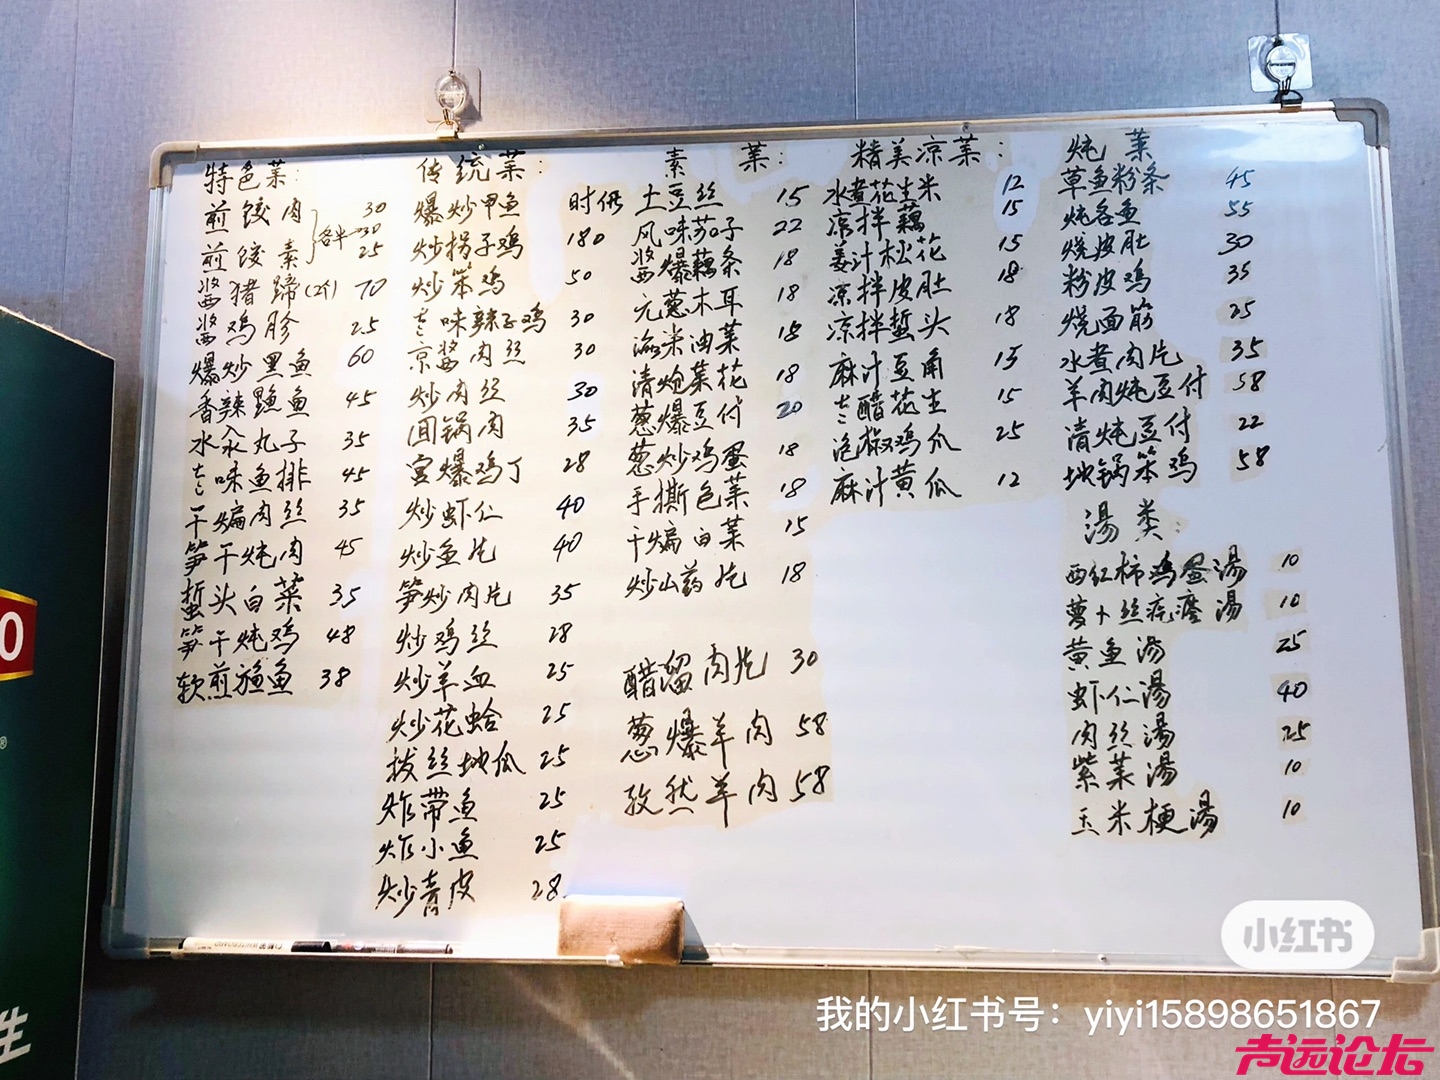 特色菜:
煎饺肉 30
各半 30
煎饺素 25
酱猪蹄(2个) 70
酱鸡胗 25
爆炒黑鱼 60
香辣鱼 45
水汆丸子 35
味鱼排 45
干煸肉丝 35
笋干炖肉 45
蜇头白菜 35
笋干炖鸡 48
软煎鱼 38
传统菜:
爆炒甲鱼 时价
炒拐子鸡 180
炒笨鸡 50
味辣子鸡 30
京酱肉丝 30
炒肉丝 30
回锅肉 35
宫爆鸡丁 28
炒虾仁 40
炒鱼片 40
笋炒肉片 35
炒鸡丝 28
炒羊血 25
炒花蛤 25
拔丝地瓜 25
炸带鱼 25
炸小鱼 25
炒青皮 28
素菜:
土豆丝 15
风味茄子 22
酱爆藕条 18
元葱木耳 18
油菜 15
清炝菜花 18
葱爆豆付 20
葱炒鸡蛋 18
手撕包菜 18
干煸白菜 15
炒山药片 18
醋溜肉片 30
葱爆羊肉 58
孜然羊肉 58
精美凉菜:
水煮花生米 12
凉拌藕 15
姜汁松花 15
凉拌皮肚 18
凉拌蜇头 18
麻汁豆角 15
醋花生 15
泡椒鸡爪 25
麻汁黄瓜 12
炖菜
草鱼粉条 45
炖鱼 55
烧皮肚 30
粉皮鸡 35
烧面筋 25
水煮肉片 35
羊肉炖豆付 58
清炖豆付 22
地锅笨鸡 58
汤类:
西红柿鸡蛋汤 10
萝卜丝疙瘩汤 10
黄鱼汤 25
虾仁汤 40
肉丝汤 25
紫菜汤 10
玉米梗汤 10
0
®
生
小红书
我的小红书号：yiyi15898651867
声远论坛